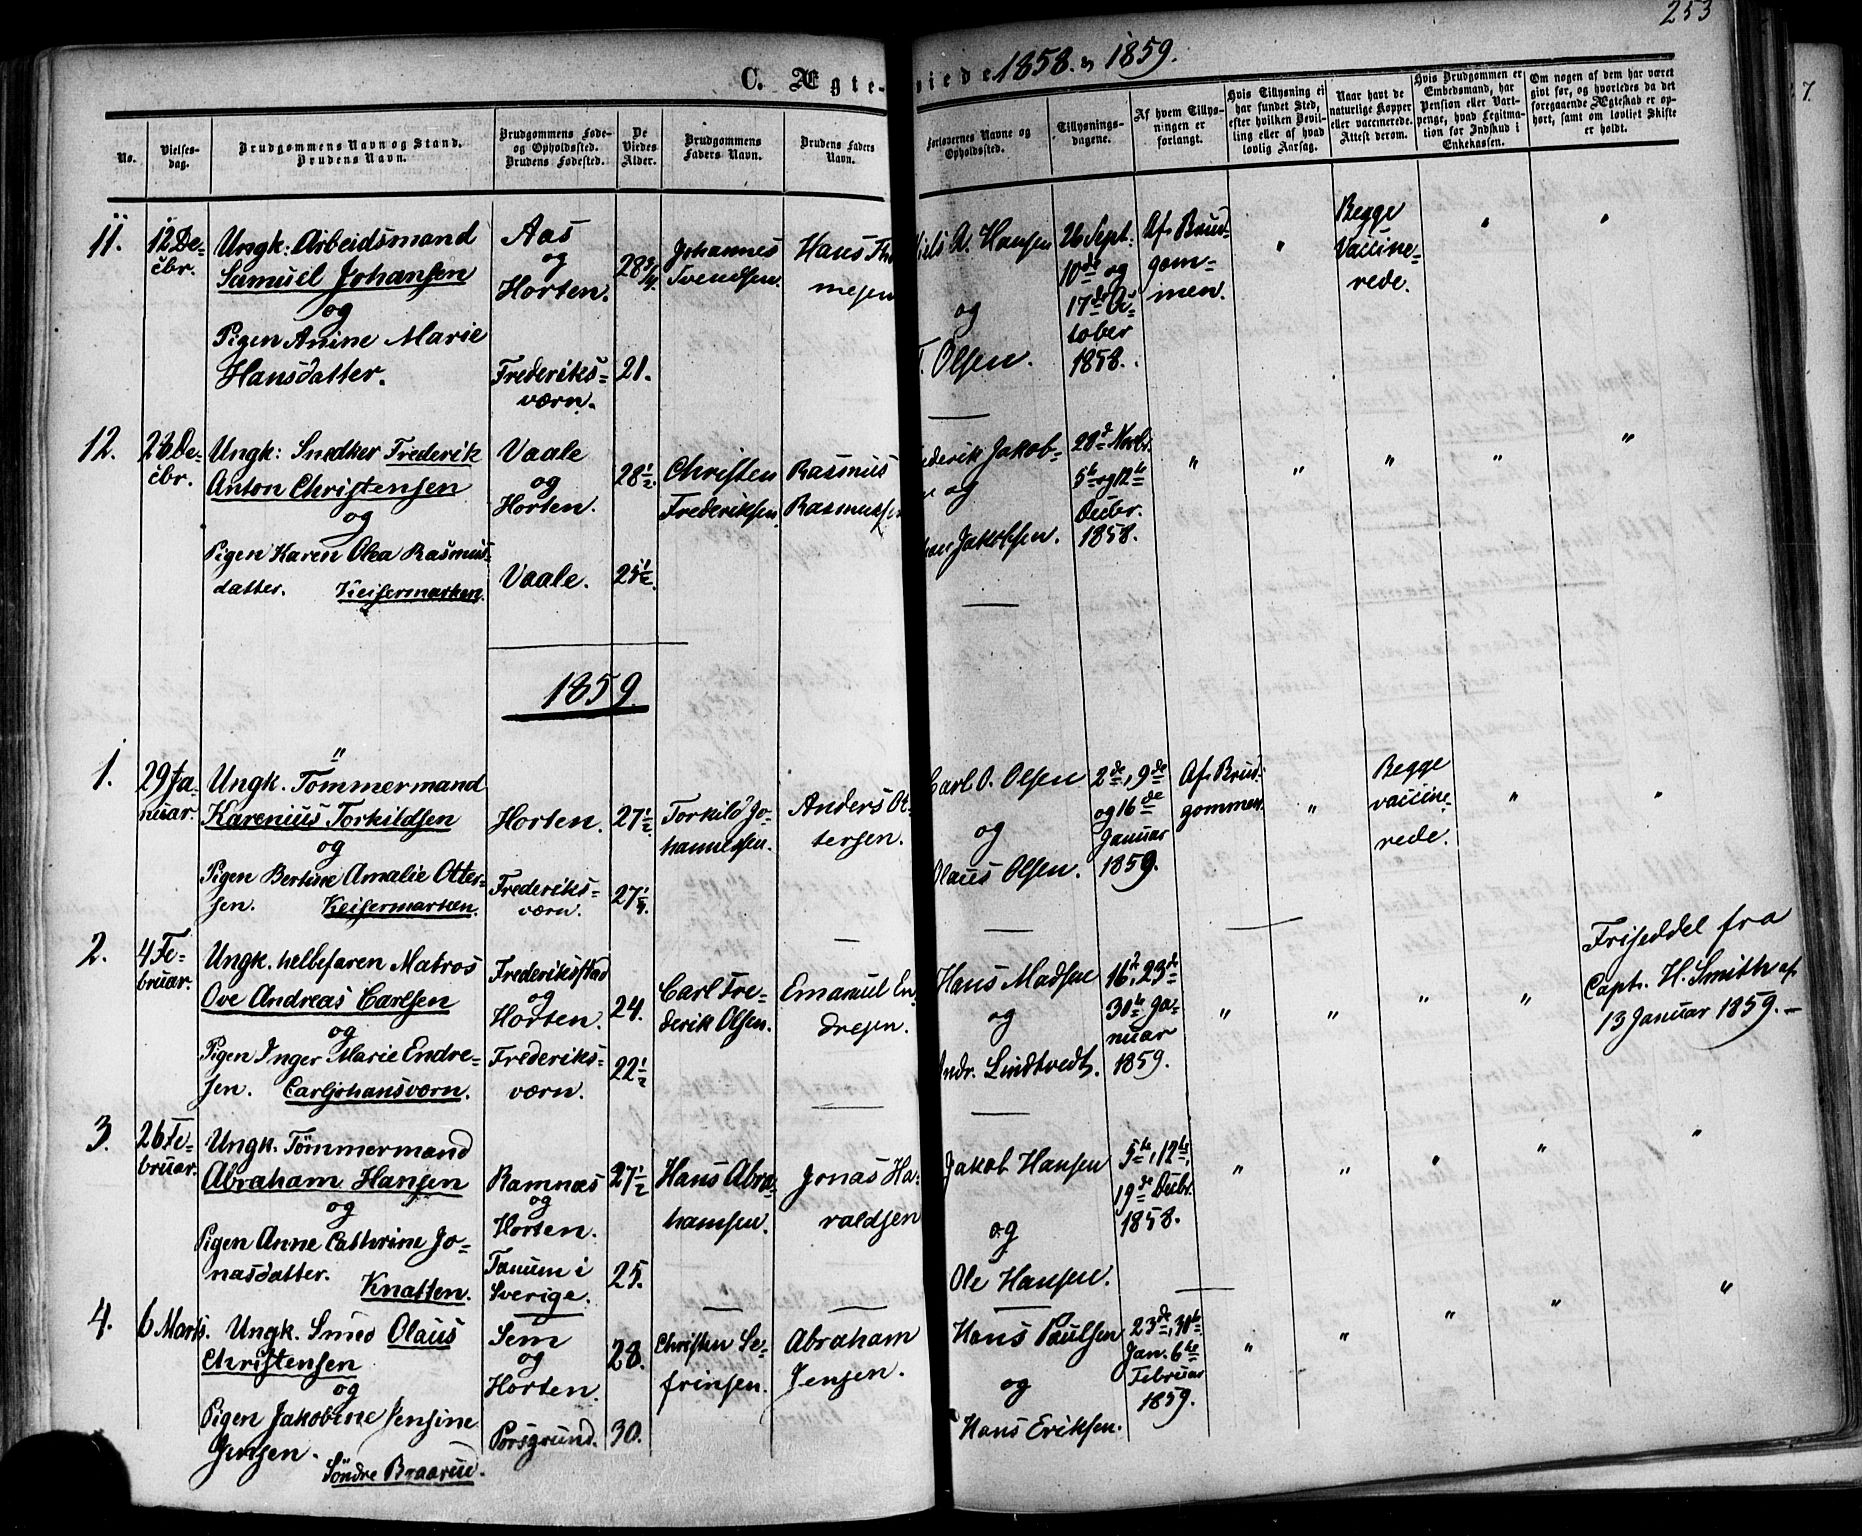 253
C. Ægte-
viede 1858. og 1859.
No.
Vielses-
dag.
Brudgommens Navn og Stand.
Brudens Navn.
Brudgommens Føde-
og Opholdssted.
Brudens Fødested.
De
Viedes
Alder.
Brudgommens
Faders Navn.
Brudens Faders
Navn.
Forlovernes Navne og
Opholdssted.
Tillysnings-
dagene.
Af hvem Tillys-
ningen er
forlangt.
Hvis Tillysning ei
har fundet Sted,
efter hvilken Bevil-
ling eller af hvad
lovlig Aarsag.
Naar havt de
naturlige Kopper
eller vaccinerede.
Attest derom.
Hvis Brudgommen er
Embedsmand, har
Pension eller Vart-
penge, hvad Legitima-
tion for Indskud i
Enkekassen.
Om nogen af dem har været
gift før, og hvorledes da det
foregaaende Ægteskab er op-
hørt, samt om lovligt Skifte
er holdt.
11.
12 De-
cbr.
Ungk: Arbeidsmand
Samuel Johansen
og
Pigen Anine Marie
Hansdatter.
Aas
og
Horten.
Frederiks-
værn.
28 3/4
21.
Johannes
Svendsen.
Hans Tho
mesen
Niels A. Hansen
og
T. Olsen.
26 Sept.
10de og
17de Oc-
tober
1858.
Af Brud-
gom-
men.
"
Begge
Vaccine-
rede.
"
"
12.
28 De-
cbr.
Ungk: Snedker Frederik
Anton Christensen
og
Pigen Karen Olea Rasmus-
datter. Keisermarken.
Vaale
og
Horten.
Vaale.
28 1/2
25 1/2
Christen
Frederiksen.
Rasmus
Rasmussen
ederik Jakob-
og
Jakobsen.
28d Novbr.
5te og 12te
Decbr.
1858.
"
"
"
"
"
1859.
1.
29 Ja-
nuar.
Ungk. Tömmermand
Karenius Torkildsen
og
Pigen Bertine Amalie Otter-
sen. Keisermarken.
Horten.
Frederiks-
værn.
27 1/2
27 1/4.
Torkild Jo-
hannesen.
Anders Ot-
tersen.
Carl O. Olsen
og
Olaus Olsen.
2de, 9de
og 16de
Januar
1859.
Af Brud-
gommen.
"
Begge
vaccine-
rede.
"
"
2.
4 Fe-
bruar.
Ungk. helbefaren Matros
Ove Andreas Carlsen
og
Pigen Inger Marie Endre-
sen. Carljohansværn.
Frederikstad
og
Horten.
Frederiks-
værn.
24.
22 1/2
Carl Fre-
derik Olsen.
Emanuel En-
dresen.
Hans Madsen
og
Andr. Lindtvedt.
16de, 23de
30te Ja-
nuar
1859.
"
"
"
"
Friseddel fra
Capt. H. Smith af
13 Januar 1859.
3.
26 Fe-
bruar.
Ungk. Tömmermand
Abraham Hansen
og
Pigen Anne Cathrine Jo-
nasdatter. Knatten.
Ramnæs
og
Horten.
Tanum i
Sverige.
27 1/2
25.
Hans Abra-
hamsen.
Jonas Ha-
raldsen
Jakob Hansen
og
Ole Hansen.
5te, 12te,
19de Decbr.
1858.
"
"
"
"
"
4.
6 Marts.
Ungk. Smed Olaus
Christensen
og
Pigen Jakobine Jensine
Jensen.
Söndre Braarud.
Sem
og
Horten.
Porsgrund.
28.
30.
Christen Se-
frinsen.
Abraham
Jensen.
Hans Paulsen
og
Hans Eriksen.
23de, 30te
Jan. 6te
Februar
1859.
"
"
"
"
"